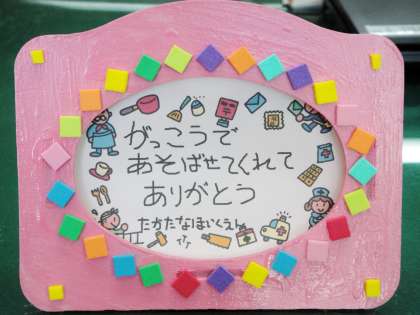 がっこうで
あそばせてくれて
ありがとう
たかたなほいくえん